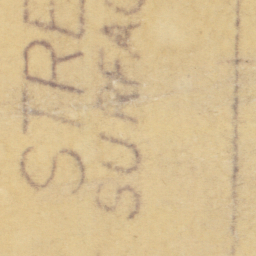 STRE
SURFAC